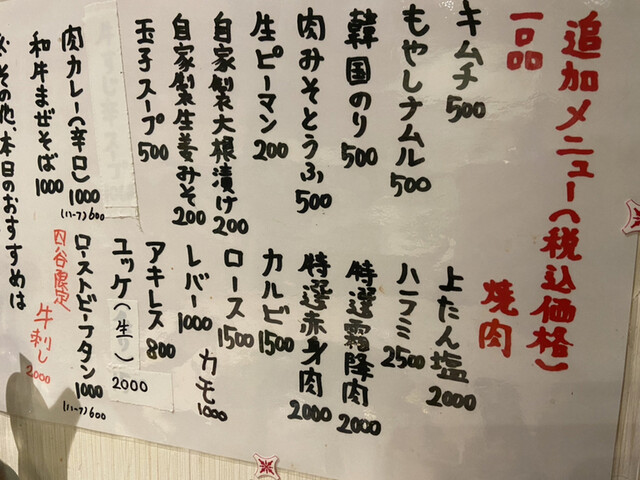 追加メニュー(税込価格)
一品
キムチ 500
もやしナムル 500
韓国のり 500
肉みそとうふ 500
生ピーマン 200
自家製大根漬け 200
自家製生姜みそ 200
玉子スープ 500
肉カレー(辛口) 1000
(ハーフ) 600
和牛まぜそば 1000
焼肉
上たん塩 2000
ハラミ 2500
特選霜降肉 2000
特選赤身肉 2000
カルビ 1500
ロース 1500
カモ 1000
レバー 1000
アキレス 800
ユッケ(生) 2000
ローストビーフタン 1000
(ハーフ) 600
四谷限定
牛刺し 2000
その他、本日のおすすめは